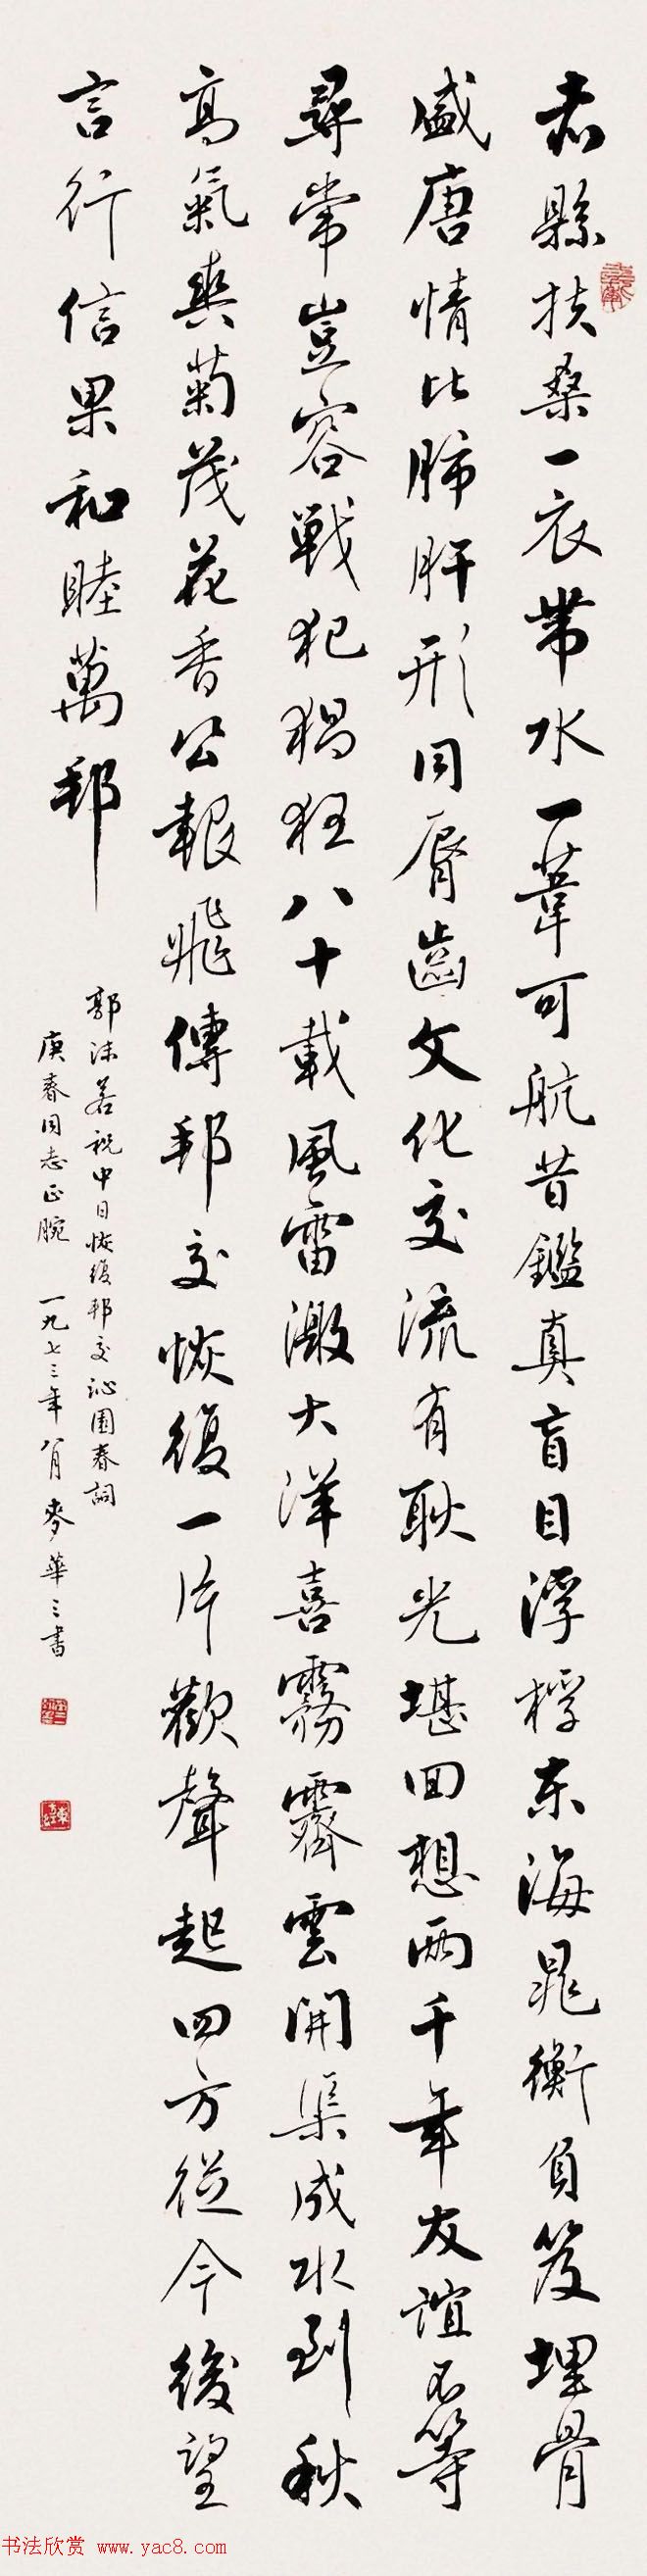 赤縣扶桑一衣帶水一葦可航昔鑑真盲目浮桴東海晁衡負笈埋骨
盛唐情比肺肝形同脣齒文化交流有耿光堪回想兩千年友誼不等
尋常豈容戰犯猖狂八十載風雷激大洋喜霧霽雲開渠成水到秋
高氣爽菊茂花香公報飛傳邦交恢復一片歡聲起四方從今後望
言行信果和睦萬邦
郭沫若祝中日恢復邦交沁園春詞
庚春同志正腕 一九七三年八月 麥華三書
书法欣赏 www.yac8.com